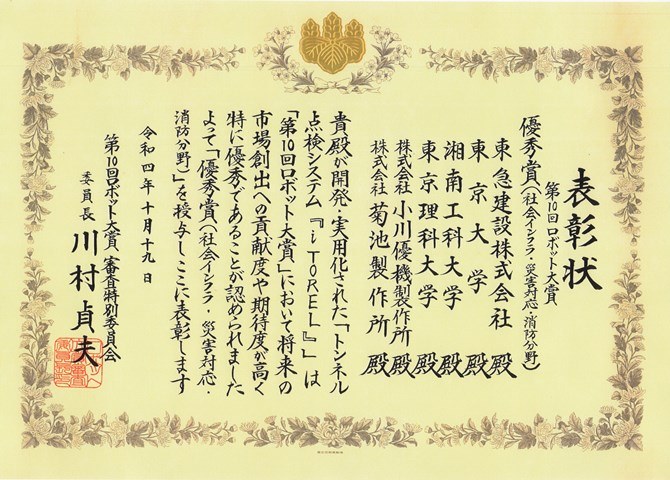 表彰状
第10回ロボット大賞
優秀賞(社会インフラ・災害対応・消防分野)
東急建設株式会社 殿
東京大学 殿
湘南工科大学 殿
東京理科大学 殿
株式会社 小川優機製作所 殿
株式会社 菊池製作所 殿
貴殿が開発・実用化された「トンネル
点検システム『iTOREL』」は
「第10回ロボット大賞」において将来の
市場創出への貢献度や期待度が高く
特に優秀であることが認められました
よって「優秀賞(社会インフラ・災害対応・
消防分野)」を授与しここに表彰します
令和四年十月十九日
第10回ロボット大賞 審査特別委員会
委員長 川村貞夫